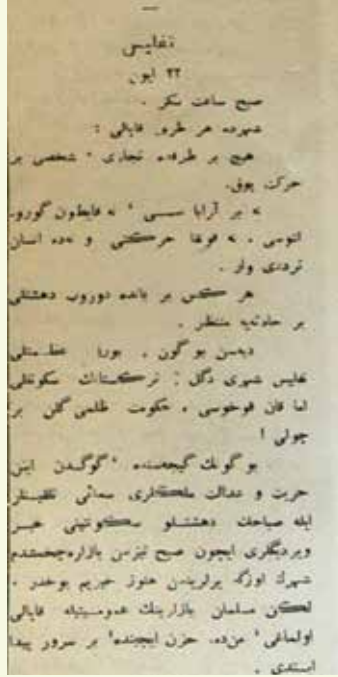 تفلیس
۲۲ ایون
صبح ساعت سکز .
شهرده هر طرف قاپالی :
هیچ بر طرفده تجاری ، شخصی بر
حرکت یوق.
نه بر آرابا سسی ، نه فایطون گورو-
لتوسی . نه غوغا حرکتی و نه‌ده انسان
ترددی وار .
هر کس بر یانده دوروب دهشتلی
بر حادثه‌یه منتظر .
دیه‌سن بو گون ، بورا عظمتلی
تفلیس شهری دگل : ترکستانك سکوتلی
اما قان قوخوسی ، حکومت ظلمی گلن بر
چولی !
بو گونك گیجه‌سنده ، گوگدن اینن
حریت و عدالت ملکلری سمائی
ایله صباحك دهشتلو سکوتینی خبر
ویردیگلری ایچون صبح تیزدن بازاره چیخدیم
شهرك اوزگه یرلریندن هنوز خبریم یوخدر .
لکن مسلمان بازارینك عمومیتیله قاپالی
اولماغی ، من‌ده، حزن ایچنده، بر سرور پیدا
ایتدی .